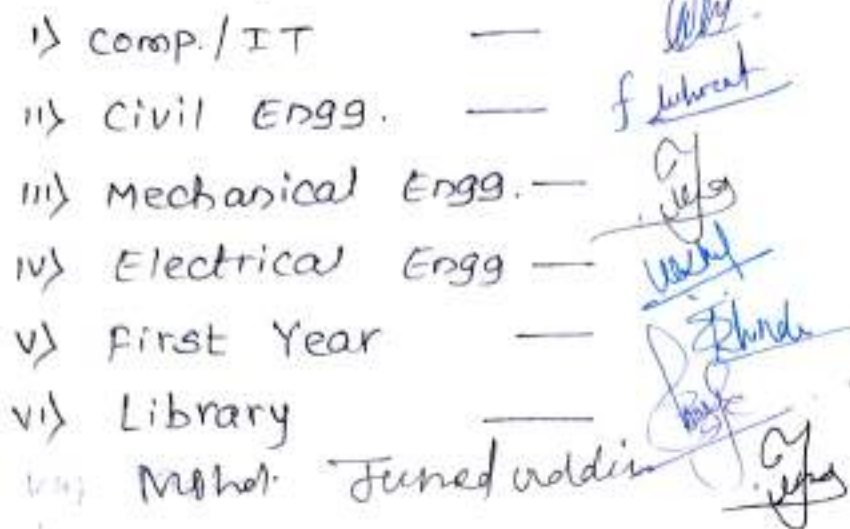 i) Comp. / IT —
ii) Civil Engg. —
iii) Mechanical Engg. —
iv) Electrical Engg —
v) First Year —
vi) Library —
vii) Mohd. Juned uddin